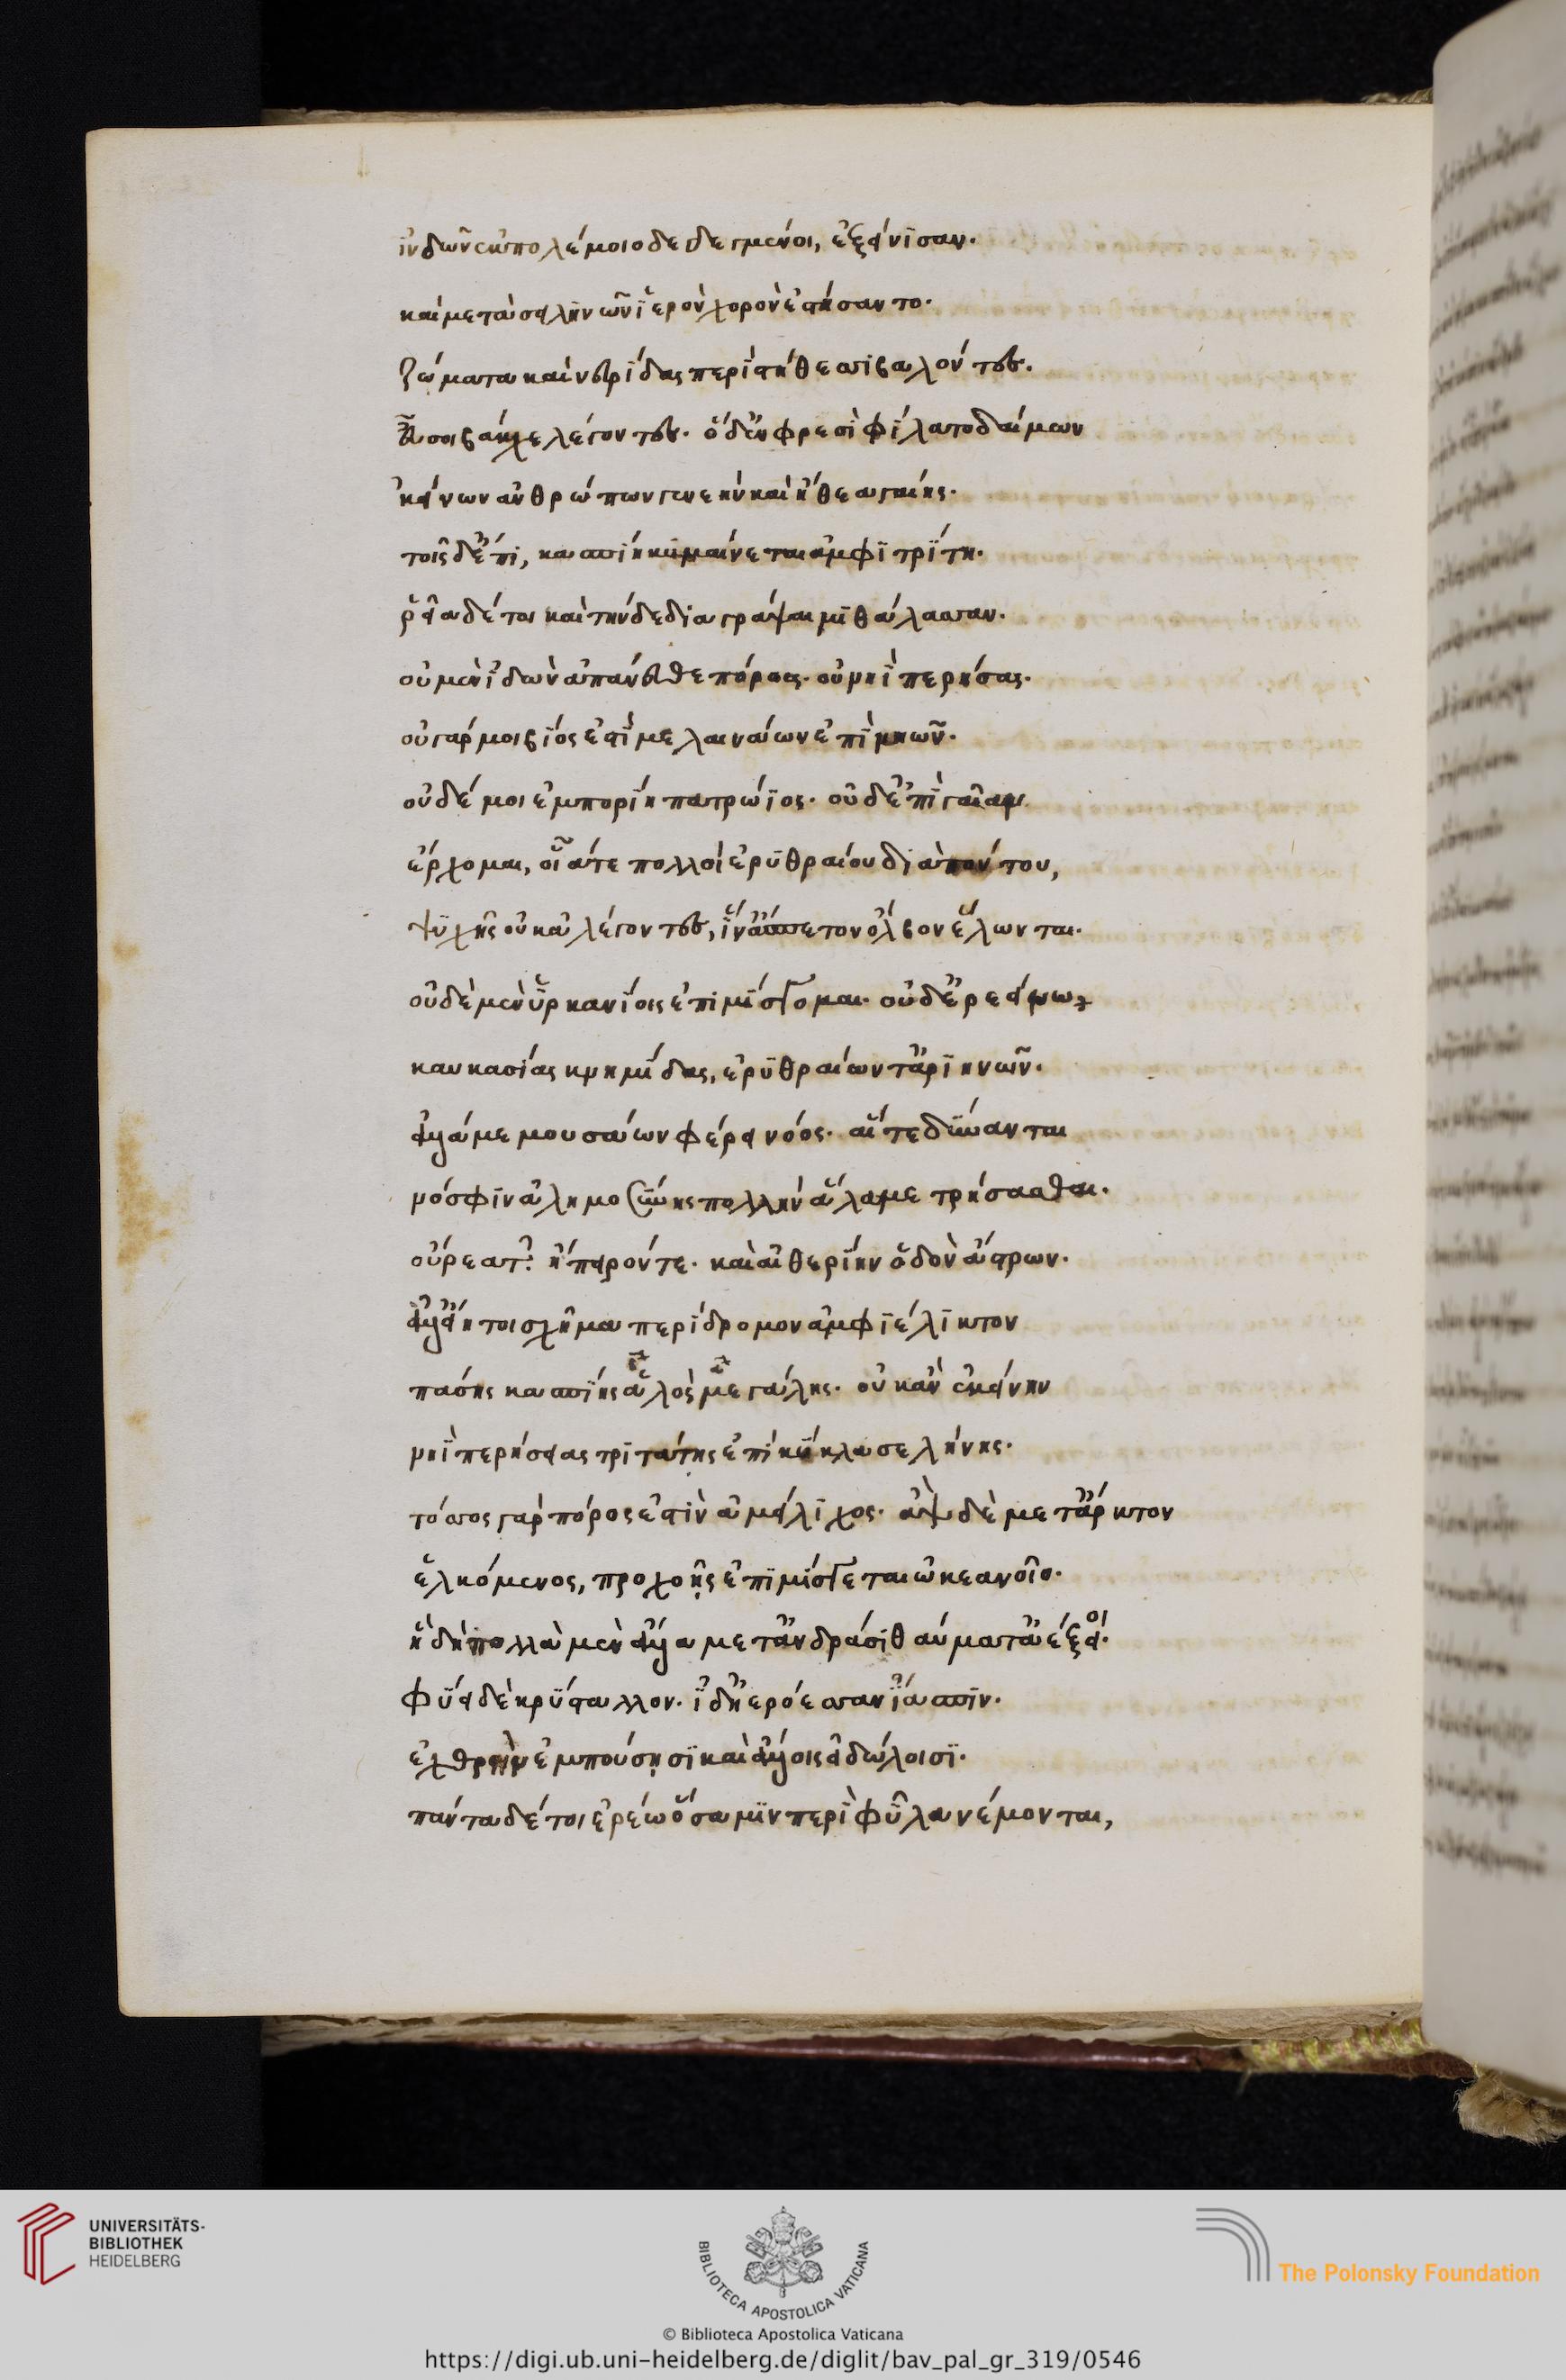 ἰνδῶν ἐκ πολέμοιο δεδεγμένοι, ἐξείνισαν.
καὶ μετὰ σεληνῶν ἱερὸν χορὸν ἐστήσαντο.
ζώματα καὶ νεβρίδας περὶ στήθεσσι βαλόντες.
εὖἁ σοι βάκχε λέγοντες. ὁ δ' ἐν φρεσὶ φίλατο δαίμων
κείνων ἀνθρώπων γενεὴν καὶ ἤθεα γαίης.
τοῖς δ' ἔπι, κασπίη κυμαίνεται ἀμφιτρίτη.
ῥεῖα δέ τοι καὶ τήνδε διαγράψαιμι θάλασσαν.
οὐ μὲν ἰδὼν ἀπάνευθε πόρους. οὐ νηῒ περήσας.
οὐ γάρ μοι βίος ἐστὶ μελαινάων ἐπὶ νηῶν.
οὐδέ μοι ἐμπορίη πατρώϊος. οὐδ' ἐπὶ γαῖαν
ἔρχομαι, οἷά τε πολλοὶ ἐρυθραίου διὰ πόντου,
ψυχῆς οὐκ ἀλέγοντες, ἵν' ἄσπετον ὄλβον ἕλωνται.
οὐδὲ μὲν ὑρκανίοις ἐπιμίσγομαι. οὐδ' ἐρεείνω
καυκασίας κνημίδας, ἐρυθραίων τ' ἀριηνῶν.
ἀλλά με μουσάων φέρει νόος. αἵτε δύνανται
νόσφιν ἀλημοσύνης πολλὴν ἅλα μετρήσασθαι.
οὔρεα τ' ἤπειρόν τε. καὶ αἰθερίην ὁδὸν ἄστρων.
ἀλλ' εἴη τοι σχῆμα περίδρομον ἀμφιέλικτον
πάσης κασπίης ἁλὸς μεγάλης. οὐκ ἂν ἐκείνην
νηῒ περήσειας τριτάτης ἐπὶ κύκλα σελήνης.
τόσσος γὰρ πόρος ἐστὶν ἀμείλιχος. ἂψ δὲ μετ' ἄρκτον
ἑλκόμενος, προχοῇς ἐπιμίσγεται ὠκεανοῖο.
ἤδη πολλὰ μὲν ἄλλα μετ' ἀνδράσι θαύματ' ἀέξοι.
φύει δὲ κρύσταλλον. ἰδ' ἠερόεσσαν ἴασπιν.
ἐχθρὴν ἐμπούσῃσι καὶ ἄλλοις εἰδώλοισι.
πάντα δέ τοι ἐρέω ὅσα μιν περὶ φῦλα νέμονται,
UNIVERSITÄTS-
BIBLIOTHEK
HEIDELBERG
BIBLIOTECA APOSTOLICA VATICANA
The Polonsky Foundation
© Biblioteca Apostolica Vaticana
https://digi.ub.uni-heidelberg.de/diglit/bav_pal_gr_319/0546